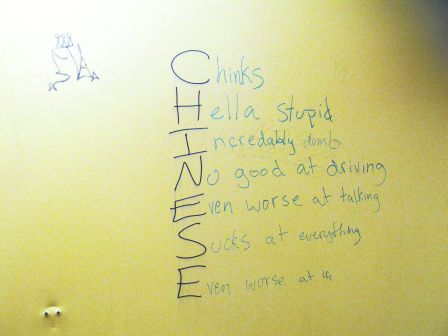 Chinks
Hella stupid
Incredably dumb
No good at driving
Even worse at talking
Sucks at everything
Even worse at the